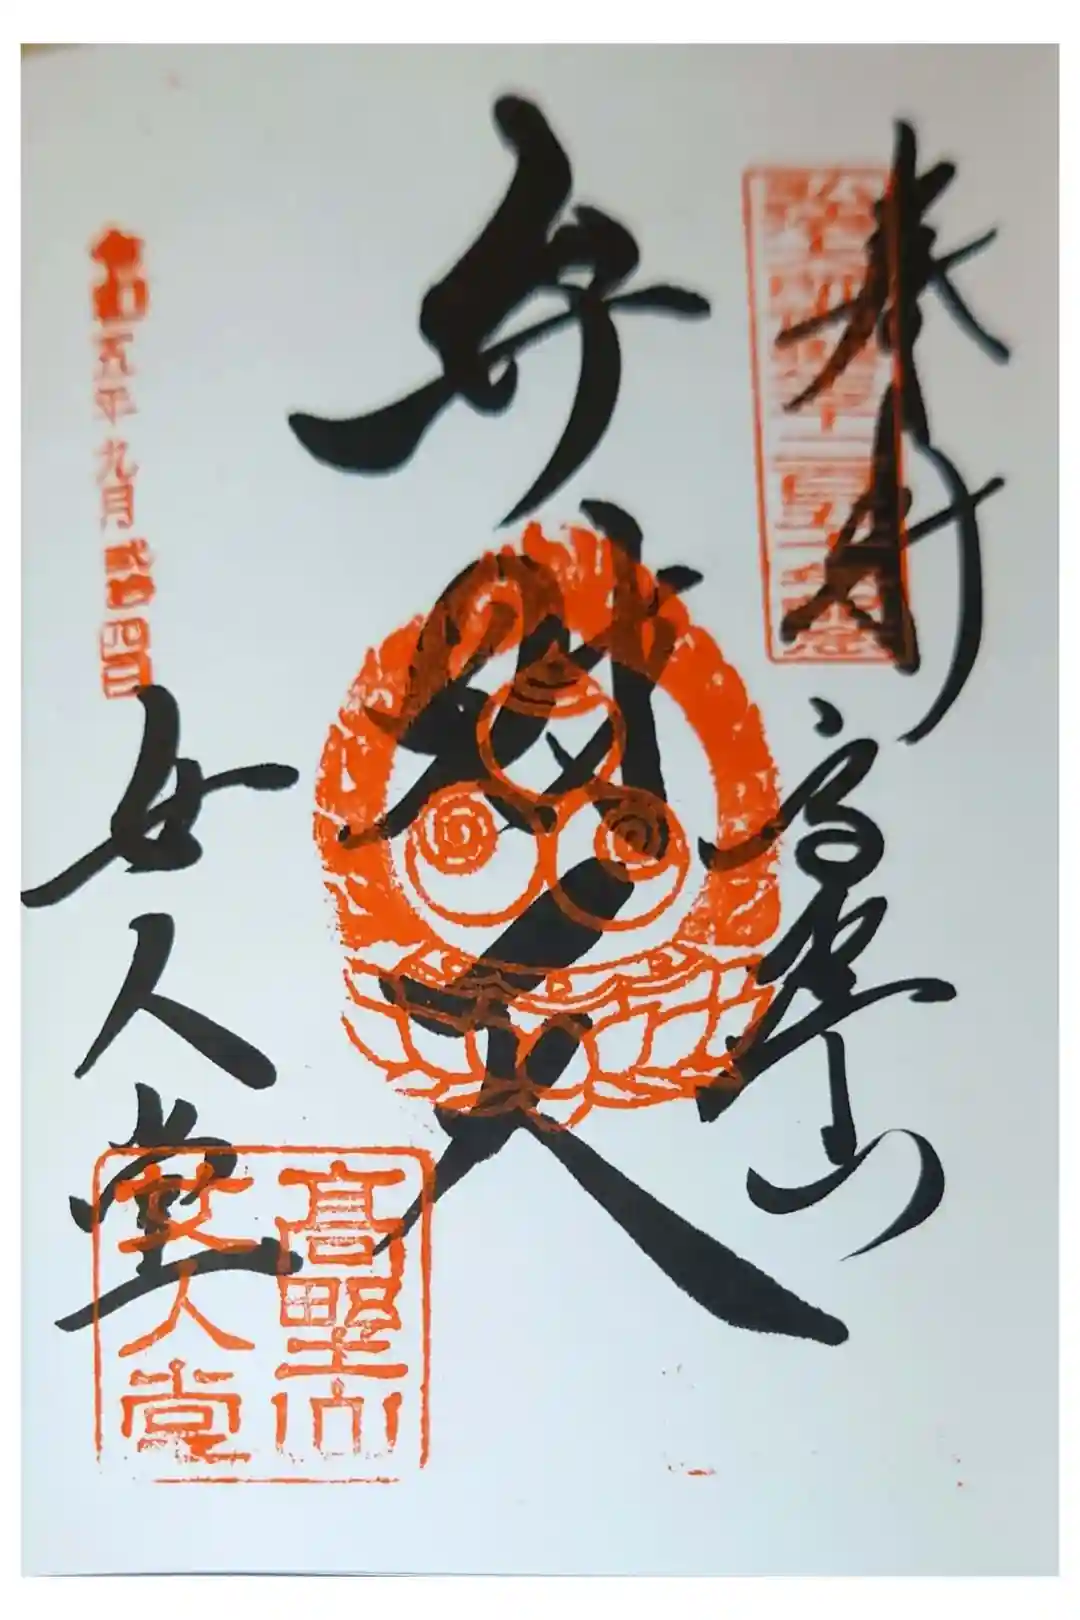 奉拝
高野山
弁財天
令和五年九月弐拾四日
女人堂
高野山
女人堂